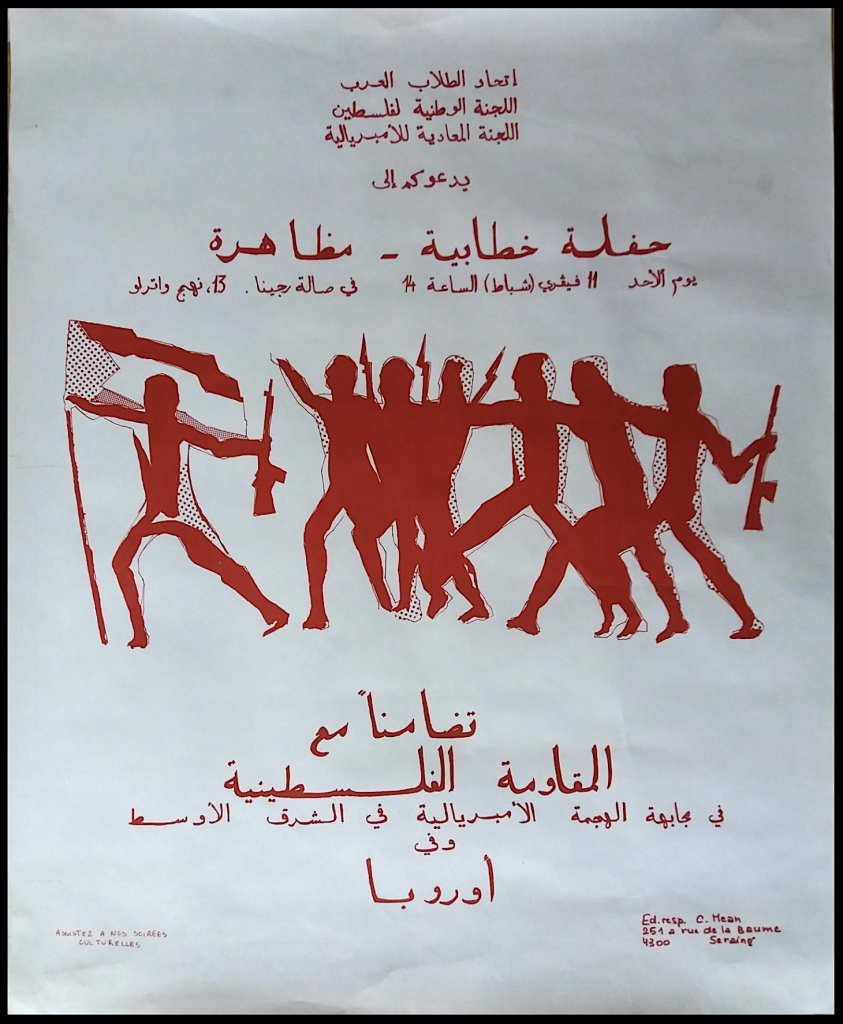 اتحاد الطلاب العرب
اللجنة الوطنية لفلسطين
اللجنة المعادية للأمبريالية
يدعوكم إلى
حفلة خطابية - مظاهرة
يوم الأحد 11 فيڤري (شباط) الساعة 14 في صالة رجينا . 13، نهج واترلو
تضامناً مع
المقاومة الفلسطينية
في مجابهة الهجمة الأمبريالية في الشرق الأوسط
وفي
أوروبا
ASSISTEZ A NOS SOIREES
CULTURELLES
Ed.resp. C. Mean
251 a rue de la Baume
4300 Seraing